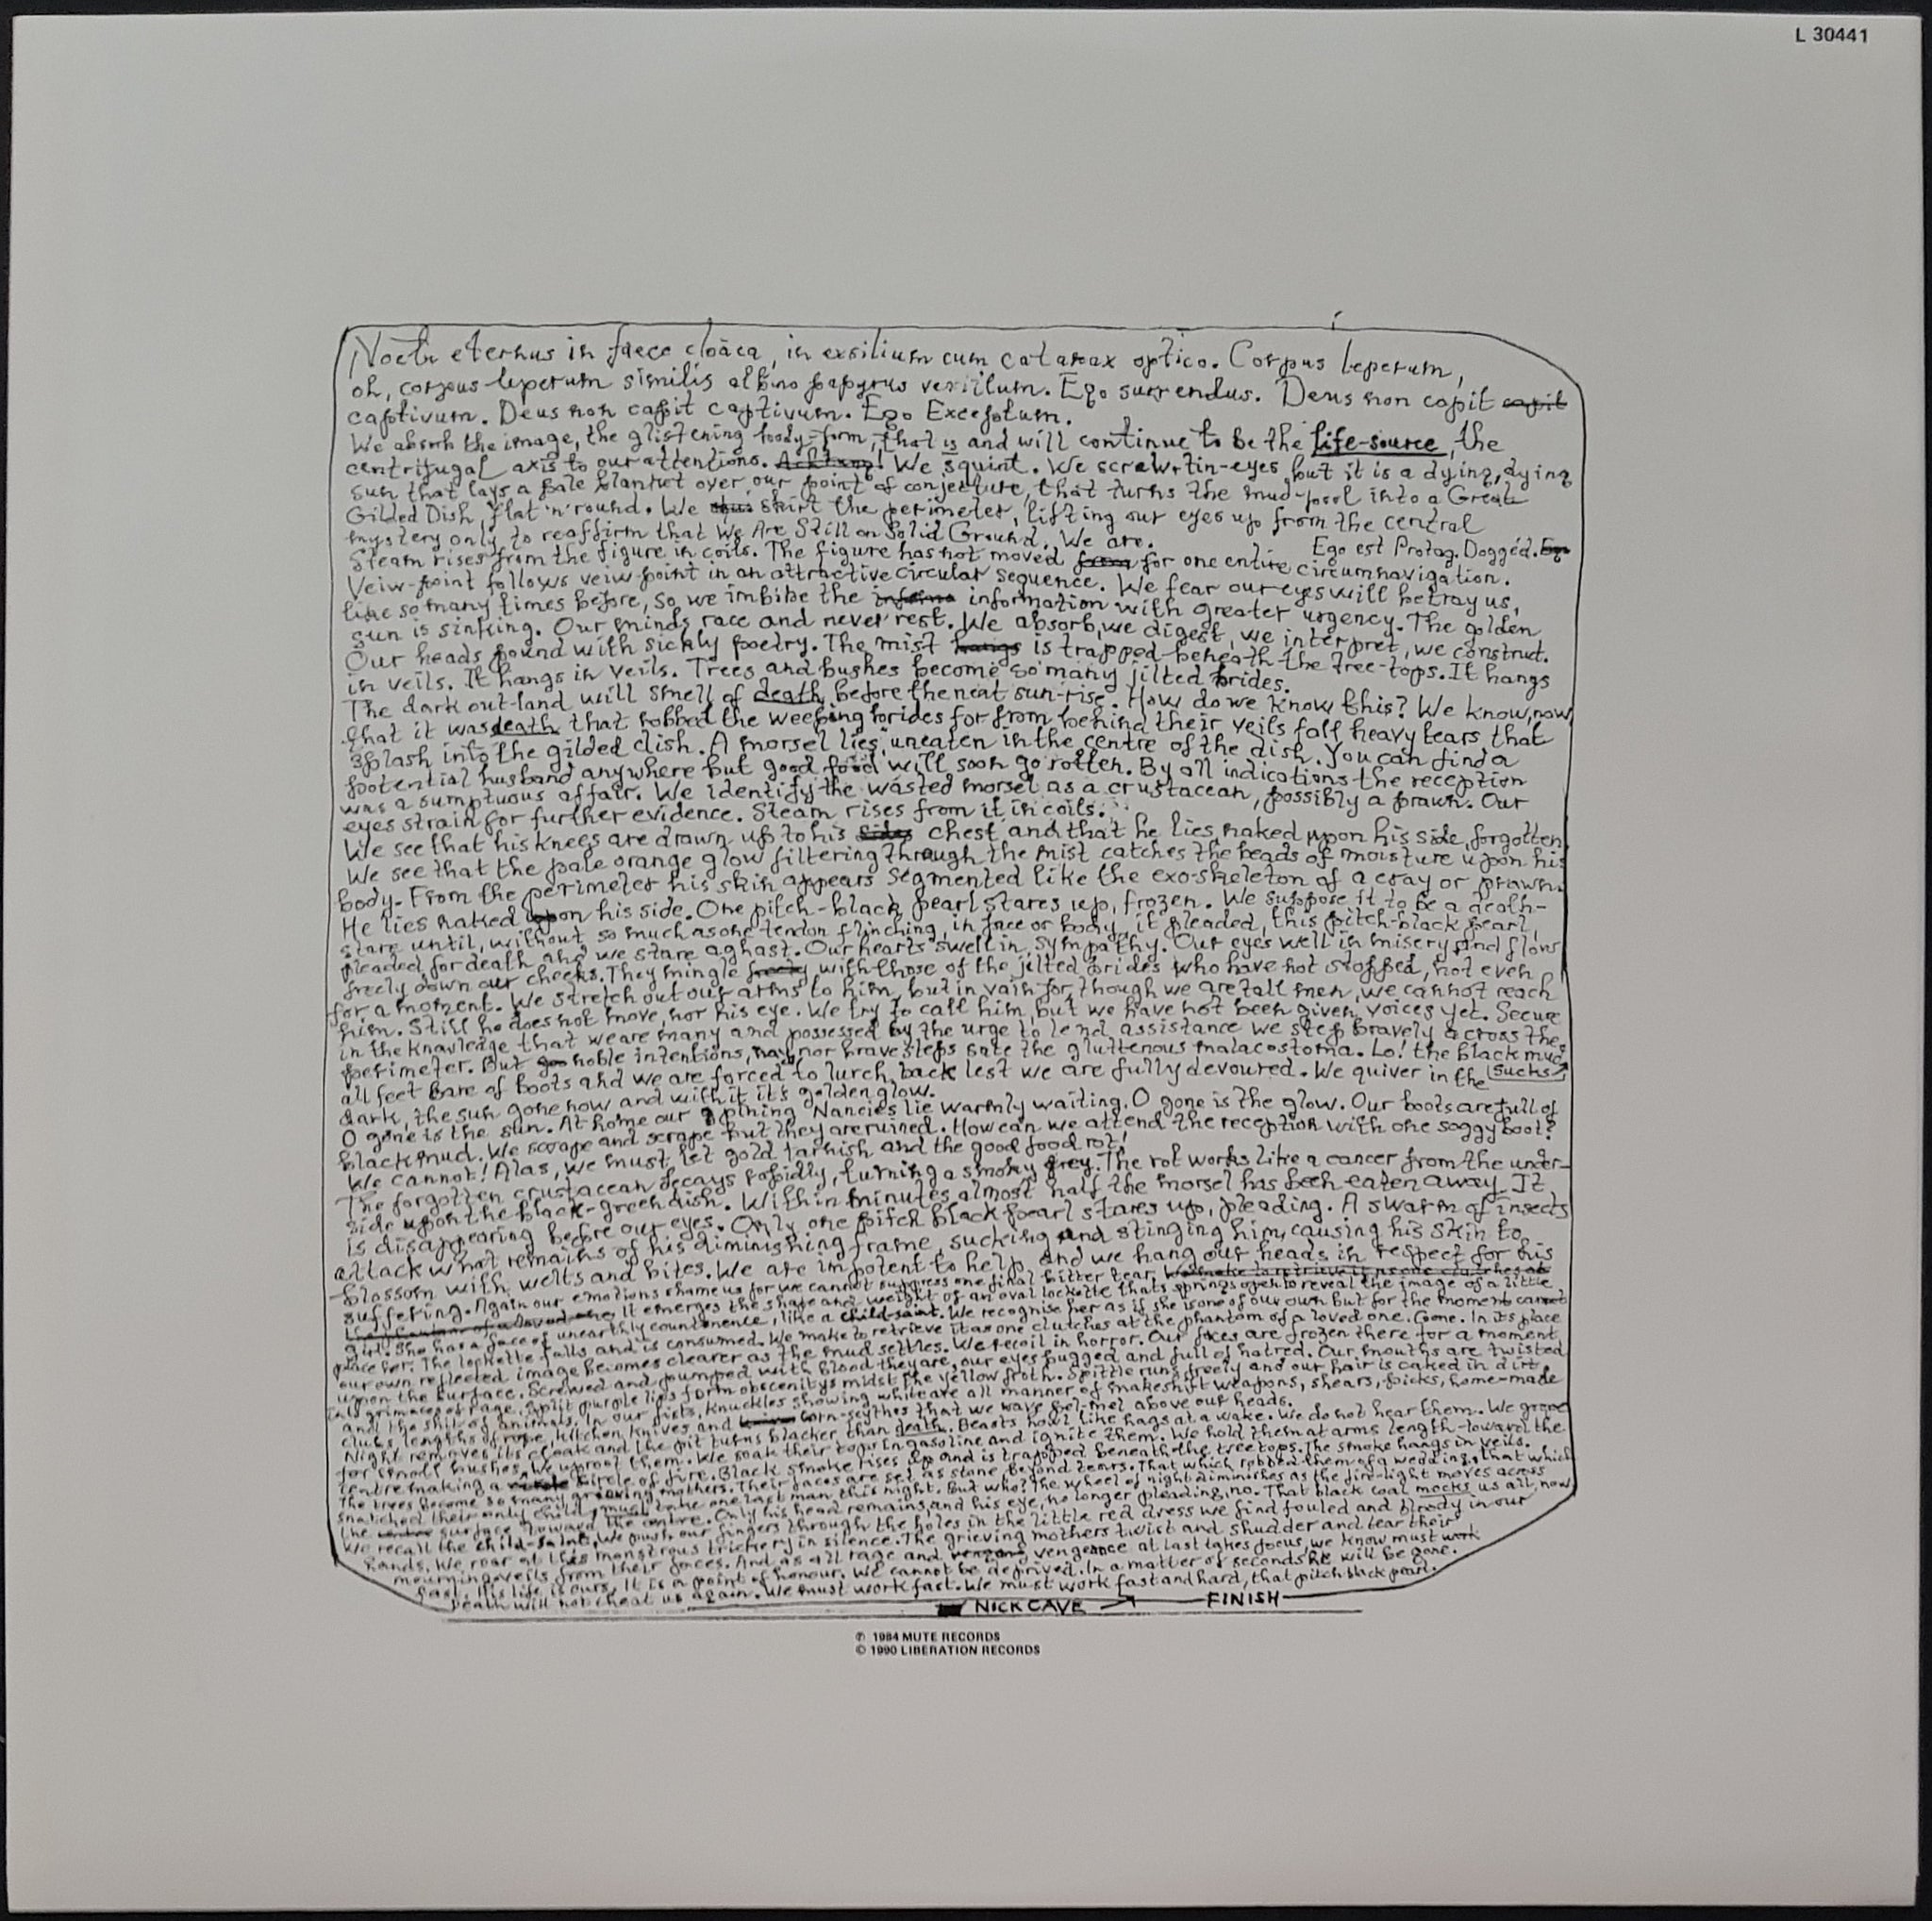 L 30441
Nocti eternus in faece cloaca, in exsilium cum catarax optico. Corpus leperum,
oh, corpus leperum similis albino papyrus vexillum. Ego surrendus. Deus non capit capit
captivum. Deus non capit captivum. Ego Exceptum.
We absorb the image, the glistening body-form, that is and will continue to be the life-source, the
centrifugal axis to our attentions. We squint. We screw-tin-eyes, but it is a dying, dying
sun that lays a pale blanket over our point of conjecture, that turns the mud-pool into a Great
Gilded Dish, flat 'n' round. We skirt the perimeter, lifting our eyes up from the central
mystery only to reaffirm that We Are Still on Solid Ground. We are.
Ego est Protag. Dogged. Eg
Steam rises from the figure in coils. The figure has not moved for one entire circumnavigation.
Veiw-point follows veiw-point in an attractive circular sequence. We fear our eyes will betray us,
like so many times before, so we imbibe the informa information with greater urgency. The golden
sun is sinking. Our minds race and never rest. We absorb, we digest, we interpret, we construct.
Our heads pound with sickly poetry. The mist hangs is trapped beneath the tree-tops. It hangs
in veils. It hangs in veils. Trees and bushes become so many jilted brides.
The dark out-land will smell of death before the next sun-rise. How do we know this? We know, now,
that it was death that robbed the weeping brides for from behind their veils fall heavy tears that
splash into the gilded dish. A morsel lies uneaten in the centre of the dish. You can find a
potential husband anywhere but good food will soon go rotten. By all indications the reception
was a sumptuous affair. We identify the wasted morsel as a crustacean, possibly a prawn. Our
eyes strain for further evidence. Steam rises from it in coils.
We see that his knees are drawn up to his sides chest and that he lies naked upon his side, forgotten.
We see that the pale orange glow filtering through the mist catches the beads of moisture upon his
body. From the perimeter his skin appears segmented like the exo-skeleton of a cray or prawn.
He lies naked upon his side. One pitch-black pearl stares up, frozen. We suppose it to be a death-
stare until, without so much as one tendon flinching, in face or body, it pleaded, this pitch-black pearl,
pleaded for death and we stare aghast. Our hearts swell in sympathy. Our eyes well in misery and flow
freely down our cheeks. They mingle freely with those of the jilted brides who have not stopped, not even
for a moment. We stretch out our arms to him, but in vain for, though we are tall men, we cannot reach
him. Still he does not move, nor his eye. We try to call him, but we have not been given voices yet. Secure
in the knowledge that we are many and possessed by the urge to lend assistance we step bravely across the
perimeter. But noble intentions, nay, nor brave steps sate the gluttenous malacostoma. Lo! the black mud
sucks
all feet bare of boots and we are forced to lurch back lest we are fully devoured. We quiver in the
dark, the sun gone now and with it it's golden glow.
O gone is the sun. At home our pining Nancies lie warmly waiting. O gone is the glow. Our boots are full of
black mud. We scrape and scrape but they are ruined. How can we attend the reception with one soggy boot?
We cannot! Alas, we must let gold tarnish and the good food rot!
The forgotten crustacean decays rapidly, turning a smoky grey. The rot works like a cancer from the under-
side upon the black-green dish. Within minutes almost half the morsel has been eaten away. It
is disappearing before our eyes. Only one pitch black pearl stares up, pleading. A swarm of insects
attack what remains of his diminishing frame, sucking and stinging him, causing his skin to
blossom with welts and bites. We are impotent to help and we hang our heads in respect for his
suffering. Again our emotions shame us for we cannot suppress one final bitter tear. We make to retrieve it as one clutches at
the phantom of a loved one. It emerges the shape and weight of an oval lockette thats springs open to reveal the image of a little
girl. She has a face of unearthly countenence, like a child-saint. We recognise her as if she is one of our own but for the moment cannot
place her. The lockette falls and is consumed. We make to retrieve it as one clutches at the phantom of a loved one. Gone. In its place
our own reflected image becomes clearer as the mud settles. We recoil in horror. Our faces are frozen there for a moment
upon the surface. Screwed and pumped with blood they are, our eyes bugged and full of hatred. Our mouths are twisted
into grimaces of rage. Split purple lips form obscenitys midst the yellow froth. Spittle runs freely and our hair is caked in dirt
and the shit of animals. In our fists, knuckles showing white are all manner of makeshift weapons, shears, picks, home-made
clubs, lengths of rope, kitchen knives and corn-scythes that we wave pel-mel above our heads.
Night removes its cloak and the pit turns blacker than death. Beasts howl like hags at a wake. We do not hear them. We grope
for small bushes. We uproot them. We soak their tops in gasoline and ignite them. We hold them at arms length toward the
centre making a circle of fire. Black smoke rises up and is trapped beneath the treetops. The smoke hangs in veils.
The trees become so many grieving mothers. Their faces are set as stone, beyond tears. That which robbed them of a wedding, that which
snatched their only child, must take one last man this night. But who? The wheel of night diminishes as the fire-light moves across
the surface toward the centre. Only his head remains, and his eye, no longer pleading, no. That black coal mocks us all, now
We recall the child-saint. We push our fingers through the holes in the little red dress we find fouled and bloody in our
hands. We roar at this monstrous trickery in silence. The grieving mothers twist and shudder and tear their
mourning veils from their faces. And as all rage and vengeance at last takes focus, we know must work
fast. His life is ours. It is a point of honour. We cannot be deprived. In a matter of seconds he will be gone.
Death will not cheat us again. We must work fast. We must work fast and hard, that pitch black pearl.
NICK CAVE → FINISH
℗ 1984 MUTE RECORDS
© 1990 LIBERATION RECORDS